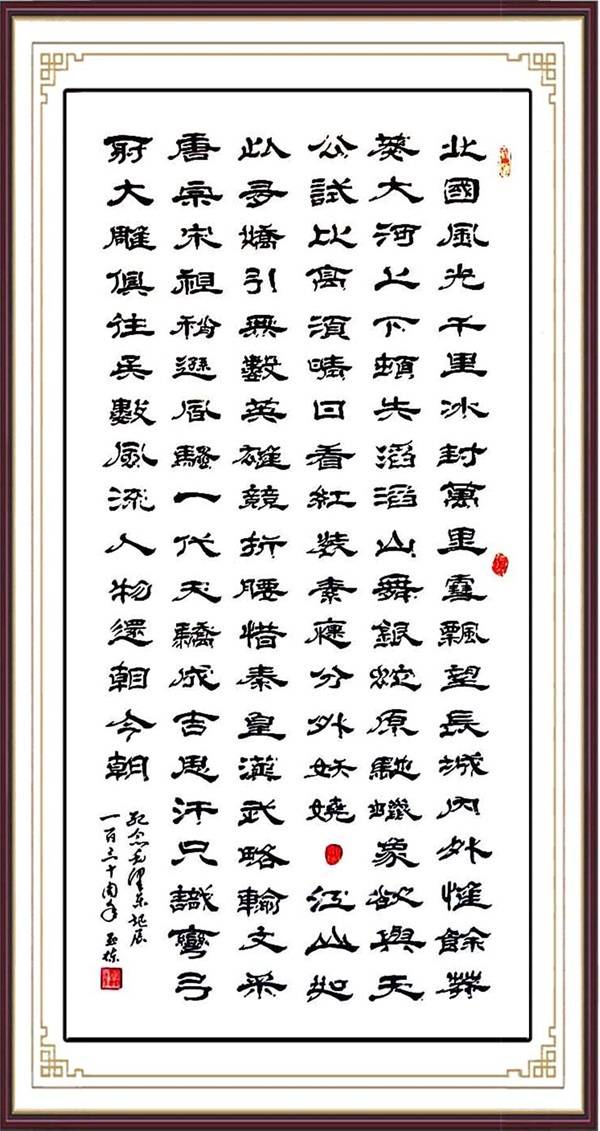 北國風光千里冰封萬里雪飄望長城內外惟餘莽
莽大河上下頓失滔滔山舞銀蛇原馳蠟象欲與天
公試比高須晴日看紅裝素裹分外妖嬈江山如
此多嬌引無數英雄競折腰惜秦皇漢武略輸文采
唐宗宋祖稍遜風騷一代天驕成吉思汗只識彎弓
射大雕俱往矣數風流人物還朝今朝
紀念毛澤東誕辰
一百三十周年